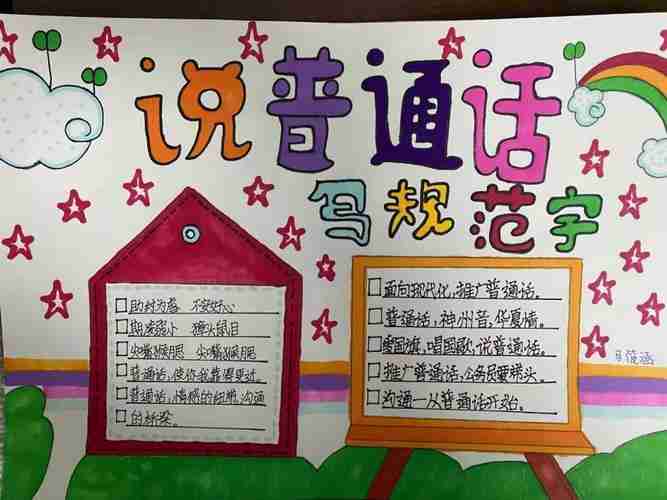 说普通话
写规范字
助纣为虐 不安好心
欺凌弱小 獐头鼠目
尖嘴猴腮 尖嘴猴腮
普通话,使你我靠得更近。
普通话,情感的纽带,沟通
的桥梁。
面向现代化,推广普通话。
普通话,神州音,华夏情。
爱国旗,唱国歌,说普通话。
推广普通话,公务员要带头。
沟通—从普通话开始。